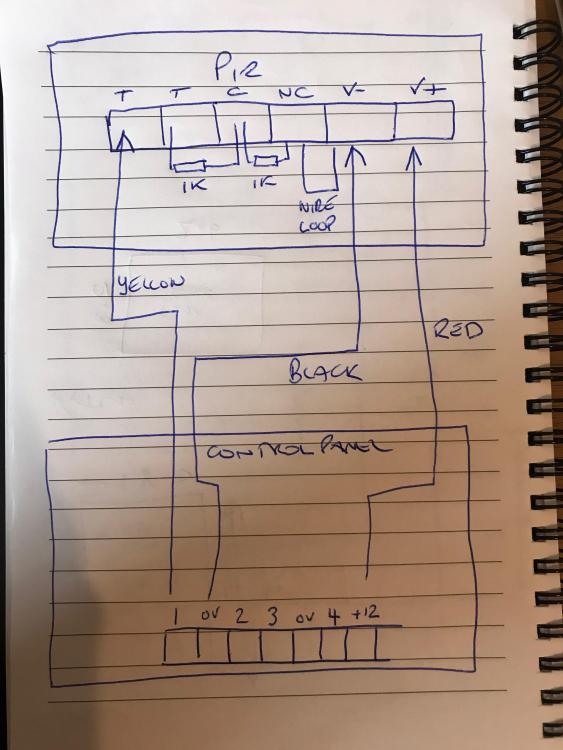 PIR
T T C NC V- V+
1K 1K
WIRE
LOOP
YELLOW
RED
BLACK
CONTROL PANEL
1 0V 2 3 0V 4 +12